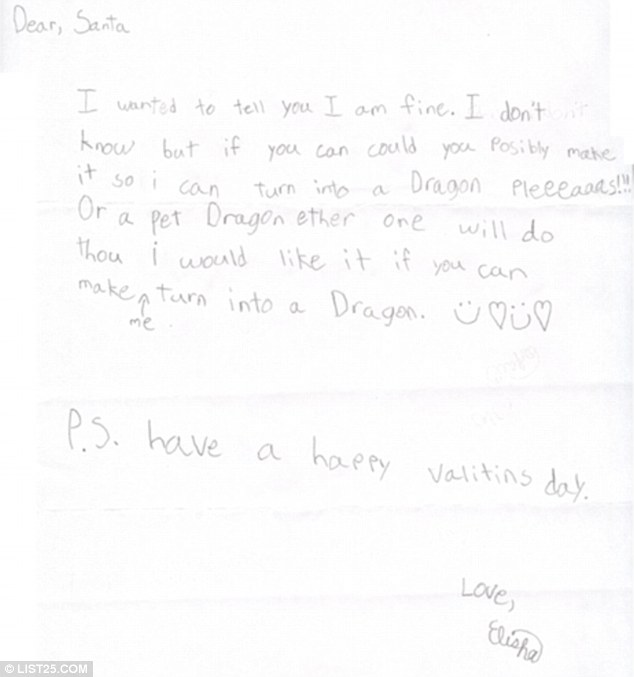 Dear, Santa
I wanted to tell you I am fine. I don't
know but if you can could you Posibly make
it so i can turn into a Dragon Pleeeaaas!!!!
Or a pet Dragon ether one will do
thou i would like it if you can
make me turn into a Dragon. ☺♡☺♡
P.S. have a happy valitins day.
Love,
Elisha
© LIST25.COM